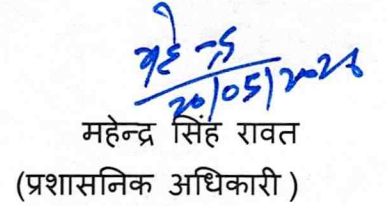 महेन्द्र
20/05/2026
महेन्द्र सिंह रावत
(प्रशासनिक अधिकारी )